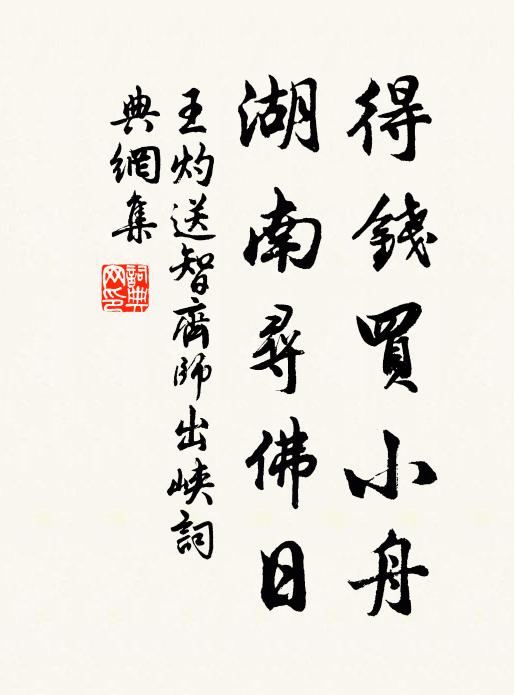 得錢買小舟
湖南尋佛日
王灼送智齊師出峽詞
典網集
詞典網印